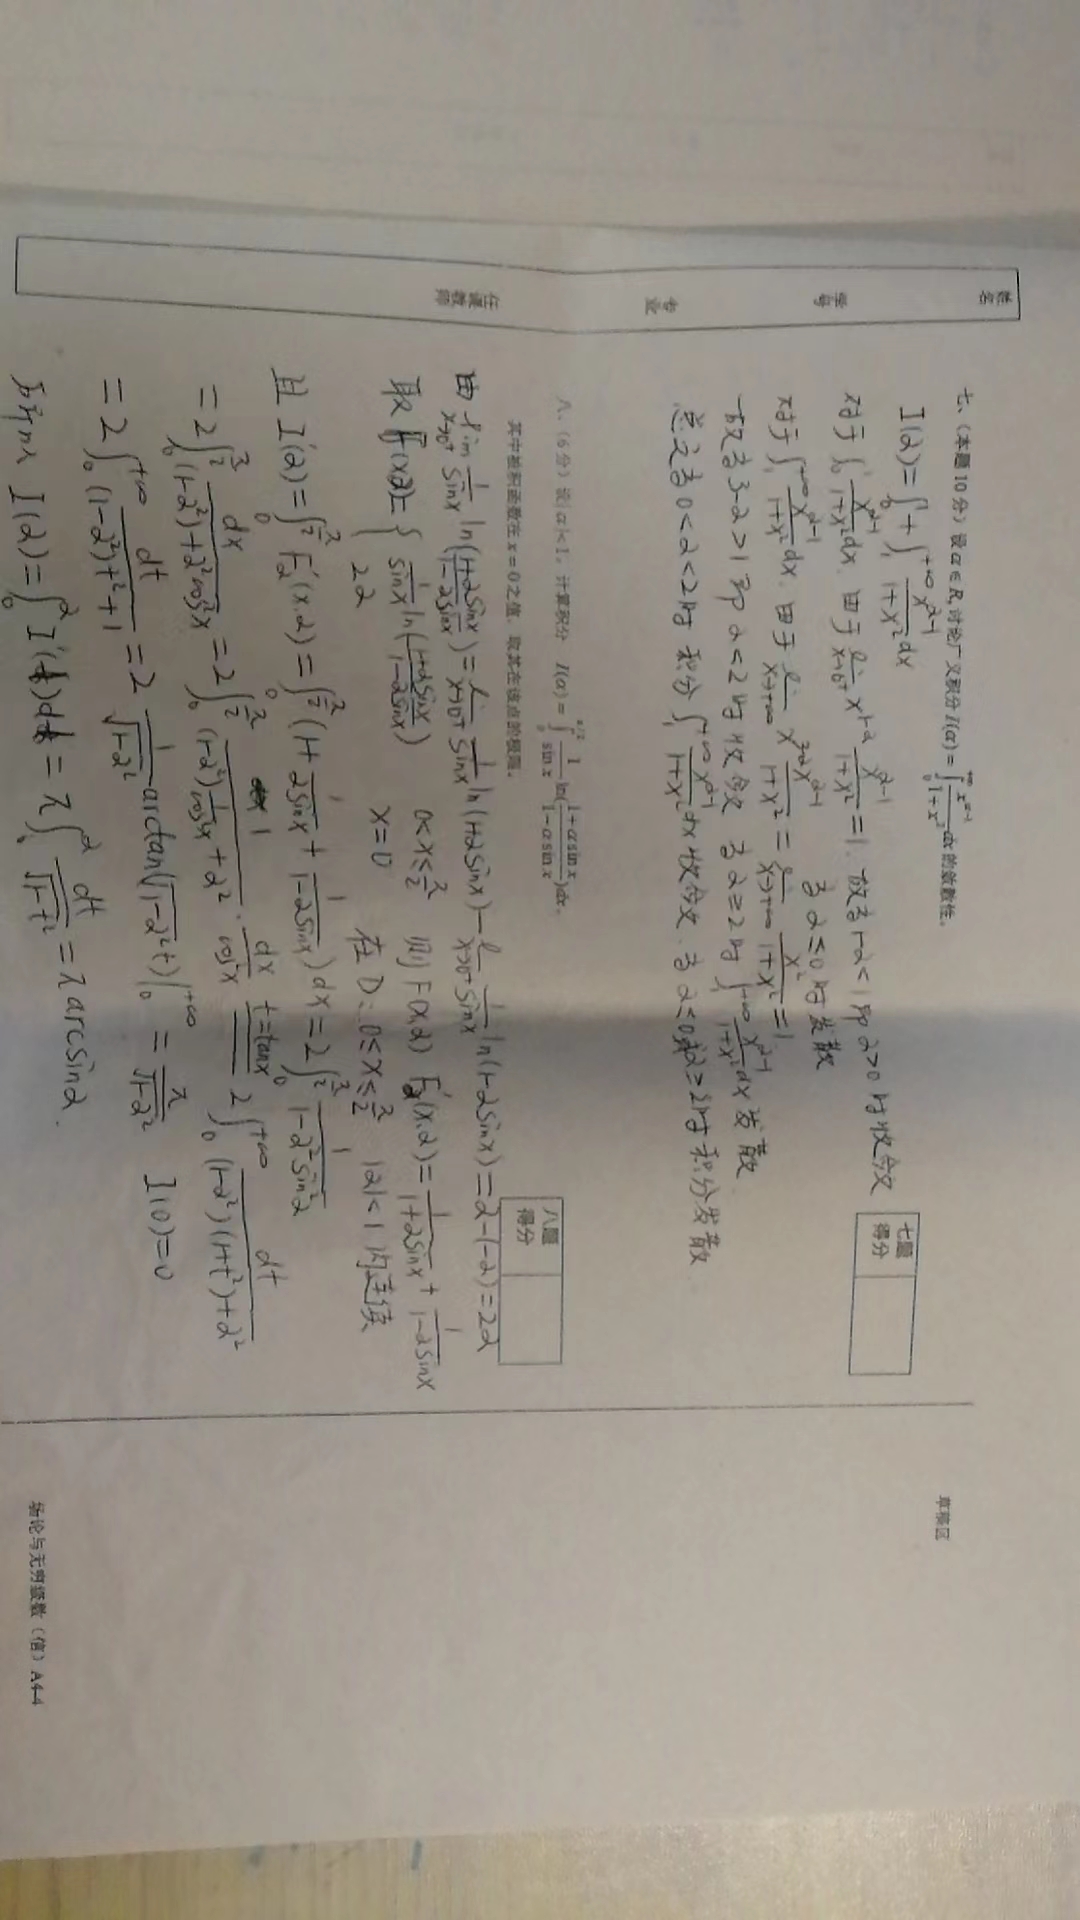 姓名
学号
专业
任课教师
七、(本题10分)设α∈R,讨论广义积分I(α)=∫₀^{+∞} x^{α-1}/(1+x²) dx的敛散性。
七题得分
草稿区
I(α)=∫₀¹+∫₁^{+∞} x^{α-1}/(1+x²) dx
对于∫₀¹ x^{α-1}/(1+x²) dx. 由于 lim_{x→0⁺} x^{1-α} x^{α-1}/(1+x²)=1. 故当1-α<1即α>0时收敛
当α≤0时发散
对于∫₁^{+∞} x^{α-1}/(1+x²) dx. 由于 lim_{x→+∞} x^{3-α} x^{α-1}/(1+x²) = lim_{x→+∞} x²/(1+x²)=1
故当3-α>1即α<2时收敛 当α≥2时∫₁^{+∞} x^{α-1}/(1+x²) dx发散
总之当0<α<2时积分∫₁^{+∞} x^{α-1}/(1+x²) dx收敛.当α≤0或α≥2时积分发散
八、(6分)设|α|<1,计算积分 I(α)=∫₀^{π/2} 1/sin x ln((1+α sin x)/(1-α sin x))dx,
其中被积函数在x=0之值,取其在该点的极限。
八题得分
由 lim_{x→0⁺} 1/sinx ln((1+αsinx)/(1-αsinx))=lim_{x→0⁺} 1/sinx ln(1+αsinx)-lim_{x→0⁺} 1/sinx ln(1-αsinx)=α-(-α)=2α
取F(x,α)={ 1/sinx ln((1+αsinx)/(1-αsinx)) 0<x≤π/2 则F(x,α) F'_α(x,α)=1/(1+αsinx)+1/(1-αsinx)
2α x=0 在D:0≤x≤π/2 |α|<1内连续
且 I'(α)=∫₀^{π/2} F'_α(x,α)=∫₀^{π/2}(1+1/αsinx+1/(1-αsinx))dx=2∫₀^{π/2} 1/(1-α²sin²α)
=2∫₀^{π/2} dx/((1-α²)+α²cos²x)=2∫₀^{π/2} 1/((1-α²)1/cos²x+α²)·dx/cos²x t=tanx 2∫₀^{+∞} dt/((1-α²)(1+t²)+α²)
=2∫₀^{+∞} dt/((1-α²)t²+1)=2 1/√(1-α²) arctan(√(1-α²)t)|₀^{+∞}=π/√(1-α²) I(0)=0
所以 I(α)=∫₀^α I'(t)dt=π∫₀^α dt/√(1-t²)=πarcsinα.
场论与无穷级数(信)A4-4